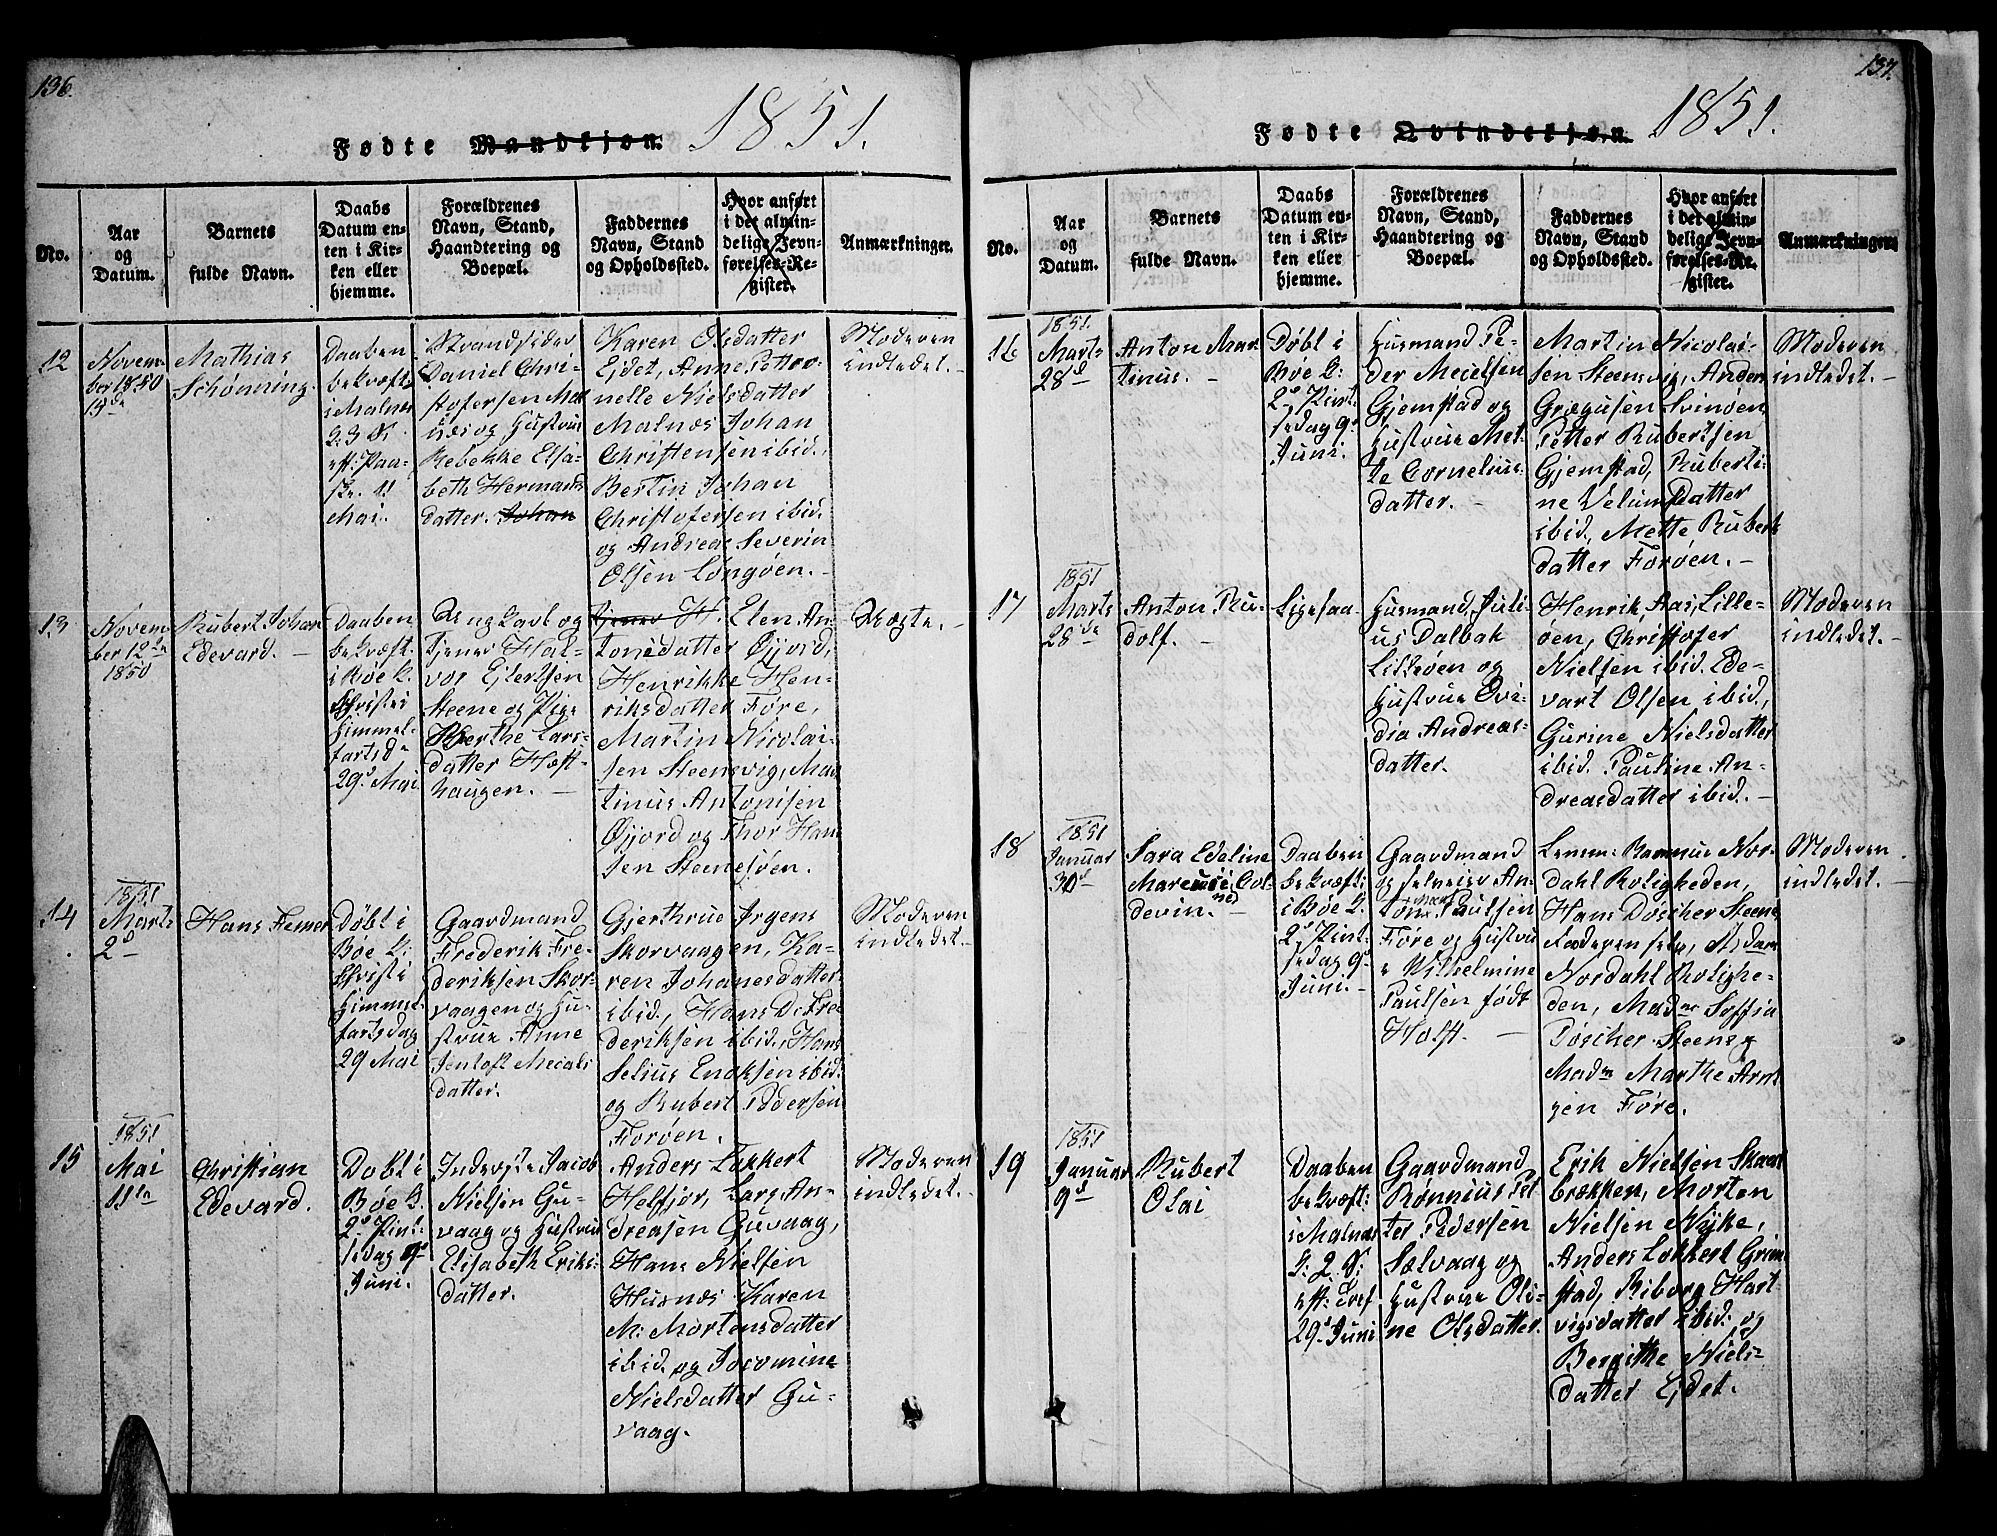 136.
1851.
Fødte Mandkjøn.
No.
Aar
og
Datum.
Barnets
fulde Navn.
Daabs
Datum en-
ten i Kir-
ken eller
hjemme.
Forældrenes
Navn, Stand,
Haandtering og
Boepæl.
Faddernes
Navn, Stand
og Opholdssted.
Hvor anført
i det almin-
delige Jevn-
førelses-Re-
gister.
Anmærkninger.
12
Novem-
ber 1850
13de
Mathias
Schønning.
Daaben
bekræft:
i Malnæs
2: S.
eft: Paa-
ske 11
Mai.
Strandsider
Daniel Chri-
stofersen Mal
næs og Hustrue
Rebekke Elisa-
beth Hermans
datter. Johan
Karen Olsdatter
Ejdet, Anne Petro-
nelle Nielsdatter
Malnæs Johan
Christensen ibid.,
Bertin Johan
Christofersen ibid.
og Andreas Severin
Olsen Longøen.
Moderen
indledet.
13
Novem
ber 12te
1850
Rubert Johan
Edevard.
Daaben
bekræft.
i Bøe K.
Christi
Himmel-
fartsd
29d Mai
Ungkarl og
Tjener Hal-
vor Ejlertsen
Steene og Pige
Berthe Lars-
datter Hæft-
haugen.
Tjener H. Elen An-
tonisdatter Øjjord,
Henrikke Hen-
riksdatter Føre,
Martin Nicolai-
sen Steensvig, Mar
tinus Antonisen
Øjjord og Thor Han
sen Steenesøen.
Uægte.
14
1851
Marts
2d
Hans Hemer
Døbt i
Bøe K:
Christi
Himmel-
fartsdag
29 Mai
Gaardmand
Frederik Fre-
deriksen Skor-
vaagen og Hu-
strue Anne
Jentoft Mecals
datter.
Gjerthrue Jrgens
Skorvaagen, Ka-
ren Johanesdatter
ibid., Hans D: Fre
deriksen ibid., Hans
Selius Enoksen ibid:
og Rubert Pedersen
Forøen.
Moderen
indledet.
15
1851
Mai
11te
Christian
Edevard.
Døbt i
Bøe K.
2d Pint:
sedag 9d
Juni.
Inderste Jacob
Nielsen Gu-
vaag og Hustrue
Elisabeth Eriks-
datter.
Anders Lokkert
Helfjor, Lars An-
dreasen Guvaag,
Hans Nielsen
Husnæs Karen
M: Mortensdatter
ibid. og Joromine
Nielsdatter Gu-
vaag.
Moderen
indledet.
137.
1851.
Fødte Qvindekjøn.
No.
Aar
og
Datum.
Barnets
fulde Navn.
Daabs
Datum en-
ten i Kir-
ken eller
hjemme.
Forældrenes
Navn, Stand,
Haandtering og
Boepæl.
Faddernes
Navn, Stand
og Opholdssted.
Hvor anført
i det almin-
delige Jevn-
førelses-Re-
gister.
Anmærkninger
16
1851.
Marts
28d
Anton Mar
tinus.
Døbt i
Bøe K:
2d Pint-
sedag 9d
Juni.
Husmand Pe-
der Meielsen
Gjemstad og
Hustrue Met-
te Cornelius-
datter.
Martin Nicolai-
sen Steensvig, Anders
Grægusen Svinøen,
Petter Rubertsen
Gjemstad, Ruberti-
ne Velumsdatter
ibid, Mette Ruberts
datter Forøen.
Moderen
indledet.
17
1851
Marts
28de
Anton Ru-
dolf.
Ligesaa
Husmand Juli-
us Dalbak
Lilleøen og
Hustrue Ovi-
dia Andreas-
datter.
Henrik Aas, Lille-
øen, Christofer
Nielsen ibid. Ede-
vart Olsen ibid,
Gurine Nielsdatter
ibid. Pauline An-
dreasdatter ibid.
Moderen
indledet.
18
1851
Januar
30d
Sara Edeline
Marcusi Col
devin.
Daaben
bekræft:
i Bøe K.
2d Pint-
sedag 9d
Juni.
Gaardmand
og selveier An-
ton Paulsen
Føre og Hustru
e Wilhelmine
Paulsen født
Holst.
Lensm. Rasmus Nor-
dahl Roligheden,
Hans Døscher Steene
Faderen selv, Madam
Nordahl Rolighe-
den, Madm Soffia
Døscher Steens og
Madm Marthe Arnt
zen Føre.
Moderen
indledet.
19
1851
Januar
9d
Rubert
Olai
Daaben
bekræft:
i Malnæs
K: 2. S:
eft: Tref
29d Juni
Gaardmand
Rønnius Pet
ter Pedersen
Sælvaag og
Hustrue Oli-
ne Olsdatter.
Erik Nielsen Skaars
brækken, Morten
Nielsen Nøjke,
Anders Lokkert Grim
stad, Riborg Hart-
vigsdatter ibid: og
Bergithe Niels-
datter Ejdet.